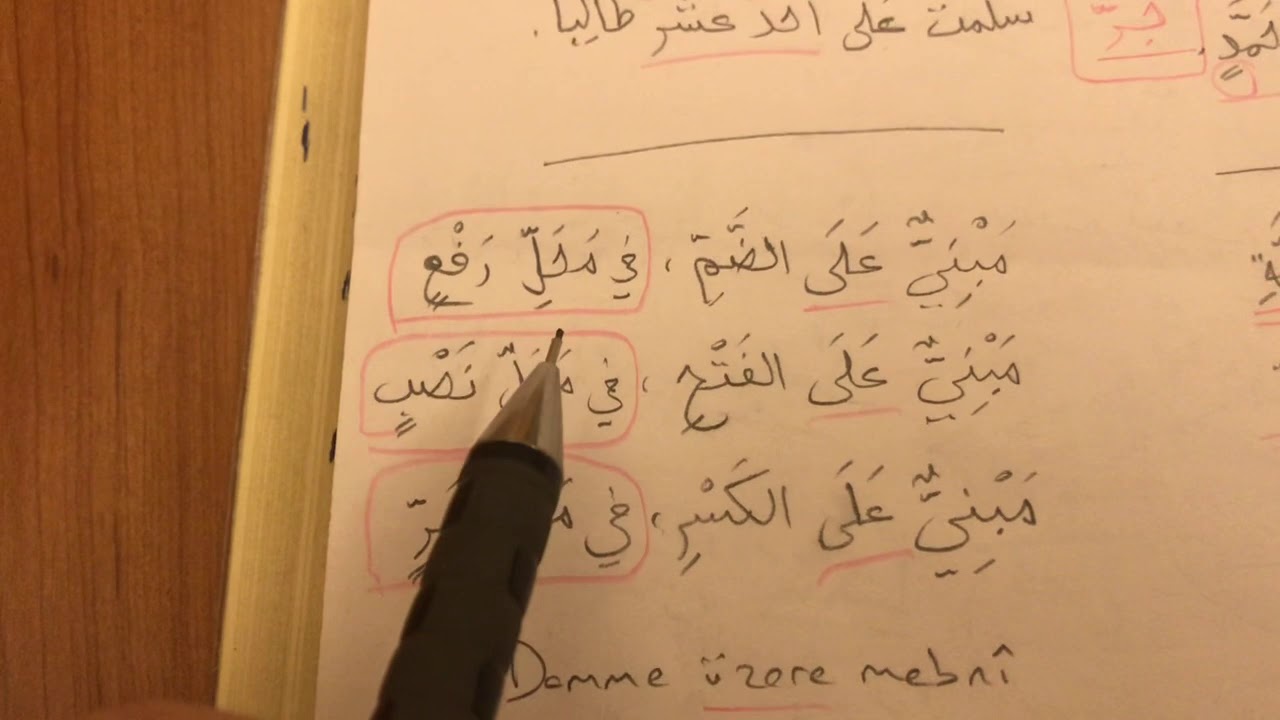 سلمت على أحد عشر طالبا. جرّ
مَبْنِيٌّ عَلَى الضَّمِّ، فِي مَحَلِّ رَفْعٍ
مَبْنِيٌّ عَلَى الفَتْحِ، فِي مَحَلِّ نَصْبٍ
مَبْنِيٌّ عَلَى الكَسْرِ، فِي
Damme üzere mebnî